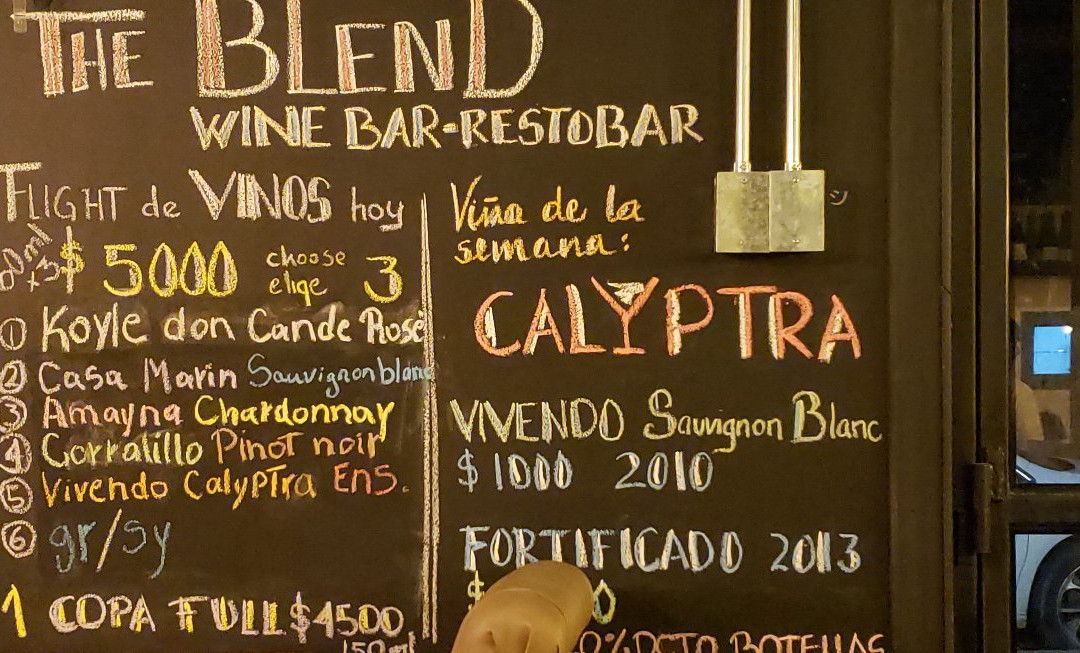 THE BLEND
WINE BAR-RESTOBAR
FLIGHT de VINOS hoy
$ 5000 choose elige 3
① Koyle don Cande Rosé
② Casa Marin Sauvignon blanc
③ Amayna Chardonnay
④ Garralillo Pinot noir
⑤ Vivendo Calyptra ENS.
⑥ gr/sy
1 COPA FULL $4500
150 ml
Viña de la
semana:
CALYPTRA
VIVENDO Sauvgnon Blanc
$1000 2010
FORTIFICADO 2013
$ 0
0% DCTO BOTELLAS